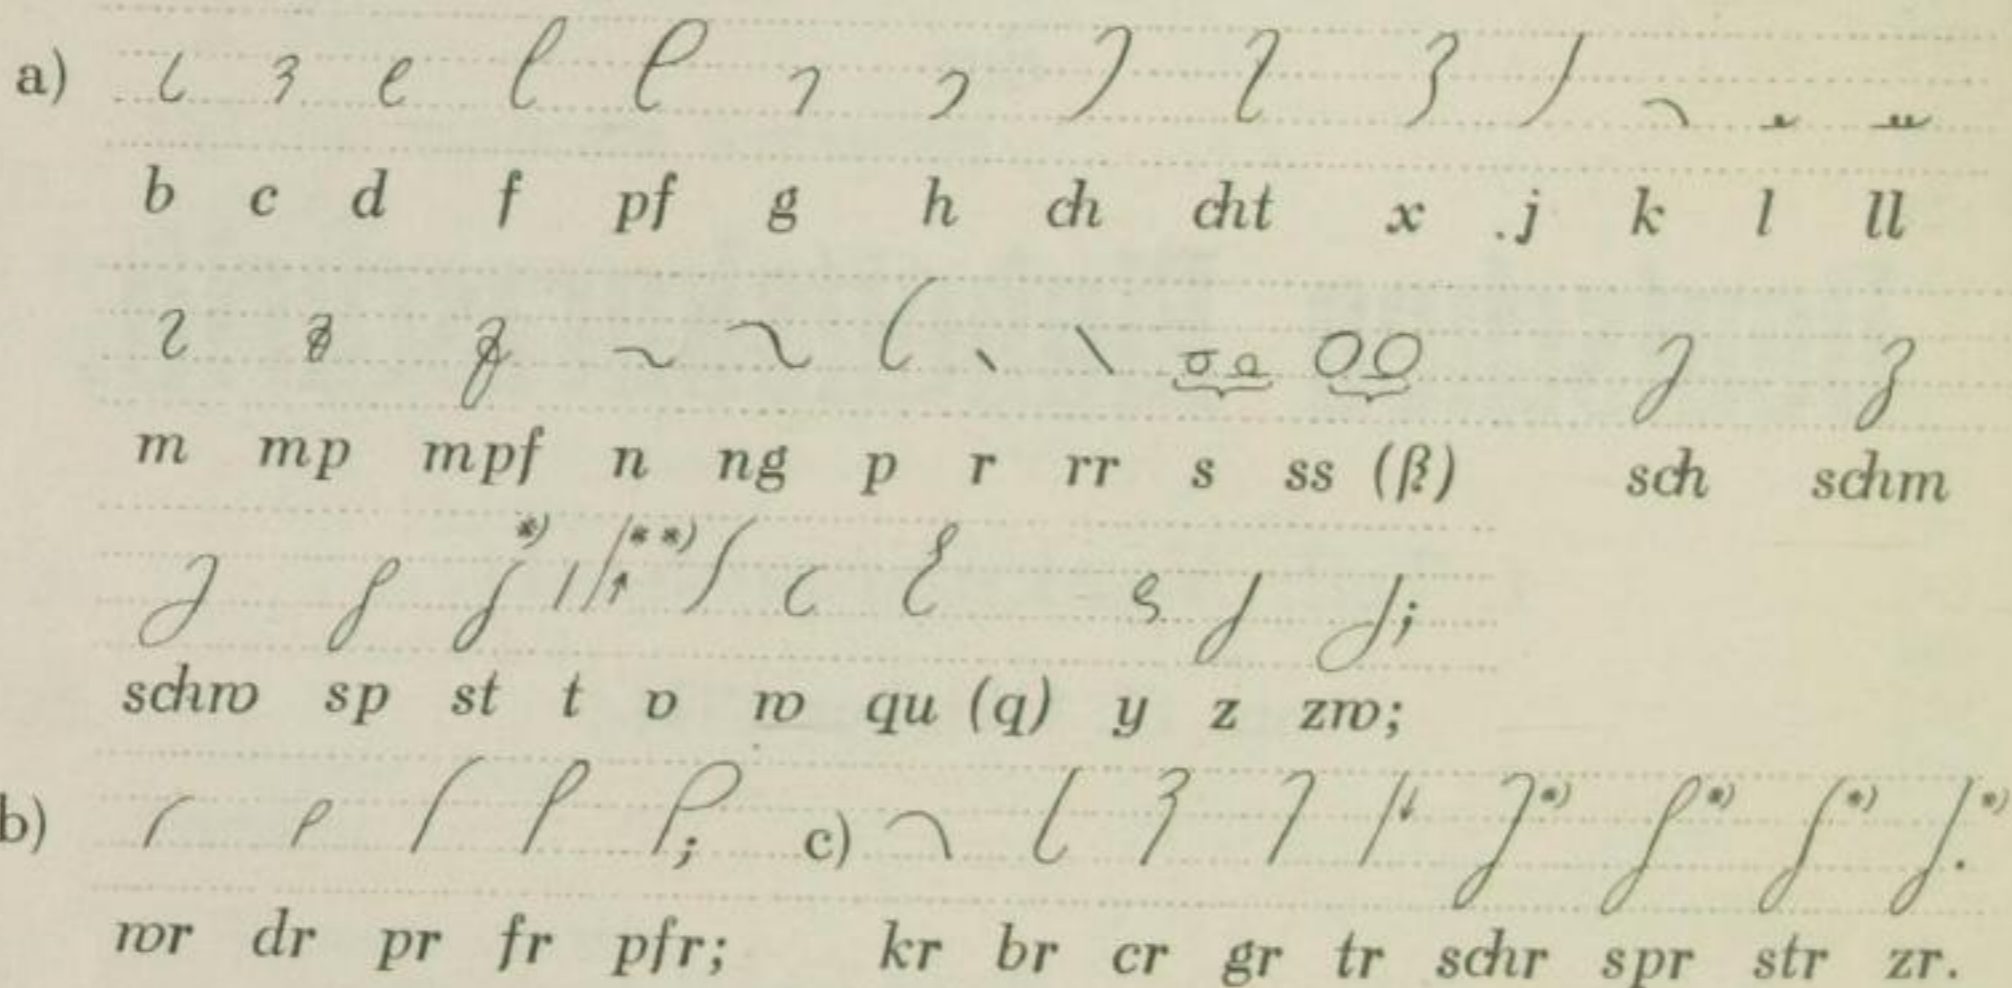 a)
b c d f pf g h ch cht x j k l ll
m mp mpf n ng p r rr s ss (ß) sch schm
*) **) ;
schw sp st t v w qu (q) y z zw;
b) ; c) *) *) *) *).
wr dr pr fr pfr; kr br cr gr tr schr spr str zr.